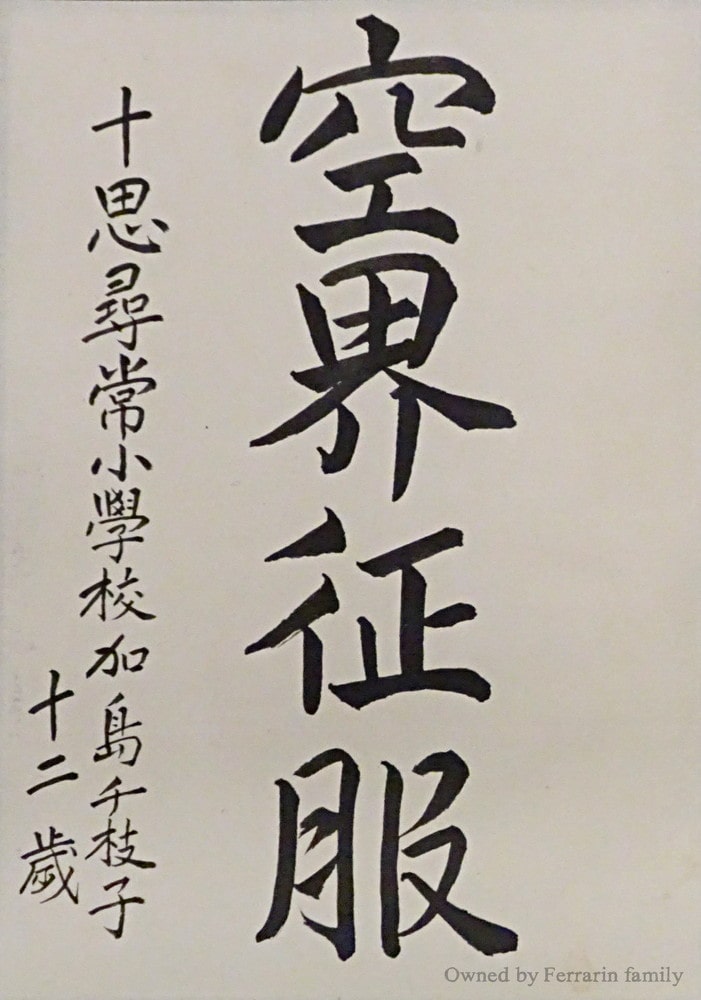 空界征服
十思尋常小學校加島千枝子
十二歲
Owned by Ferrarin family